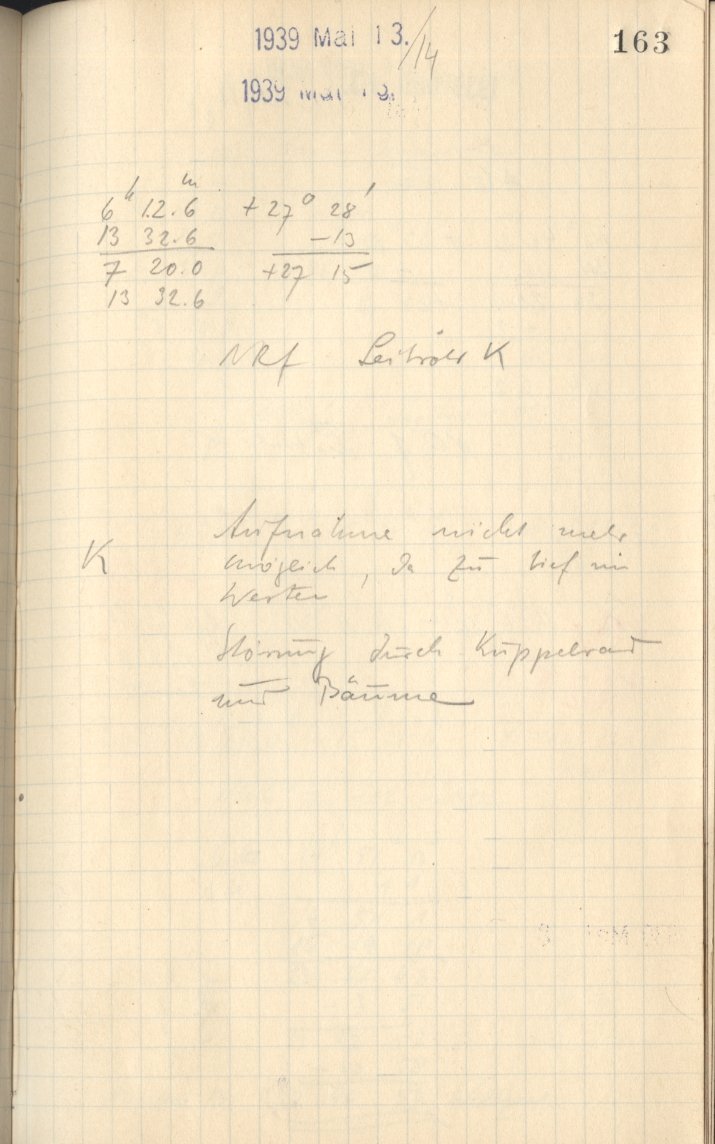 163
1939 Mai 13./14
1939 Mai 13.
6h 12.6m +27° 28'
13 32.6 -13
7 20.0 +27 15
13 32.6
NRf Leitrohr K
K Aufnahme nicht mehr
möglich, da zu tief im
Westen
Störung durch Kuppelrand
und Bäume